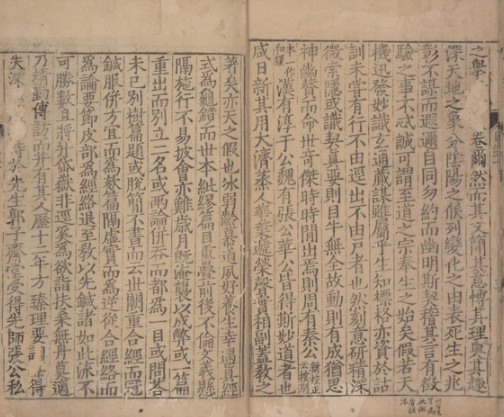 之舉　卷爾然而其文簡其意博其理奧其趣
深天地之象分陰陽之候列變化之由表死生之兆
彰不謀而遐邇自同勿約而幽明斯契稽其言有徵
驗之事不忒誠可謂至道之宗奉生之始矣假若天
機迅發妙識玄通蕆謀雖屬乎生知標格亦資於詁
訓未嘗有行不由逕出不由戶者也然刻意研精探
微索隱或識契真要則目牛無全故動則有成猶
神幽贊而命世奇傑時時間出焉則周有秦公新校正云按別
本一作和緩漢有淳于公魏有張公華公皆得斯妙道者也
咸日新其用大濟蒸人華葉遞榮聲實相副蓋教之
著矣亦天之假也冰弱齡慕道夙好養生幸遇真經
式為龜鏡而世本紕繆篇目重疊前後不倫文義懸
隔施行不易披會亦難歲月既淹襲以成弊或一篇
重出而別立二名或兩論併吞而都為一目或問答
未已別樹篇題或脫簡不書而云世闕重合經而冠
鍼服併方宜而為欬篇隔虛實而為逆從合經絡而
為論要節皮部為經絡退至教以先鍼諸如此流不
可勝數且將升岱嶽非逕奚為欲詣扶桑無舟莫適
乃精勤博訪而并有其人歷十二年方臻理要詢　得
失深　時於先生郭子齋堂受得先師張公祕